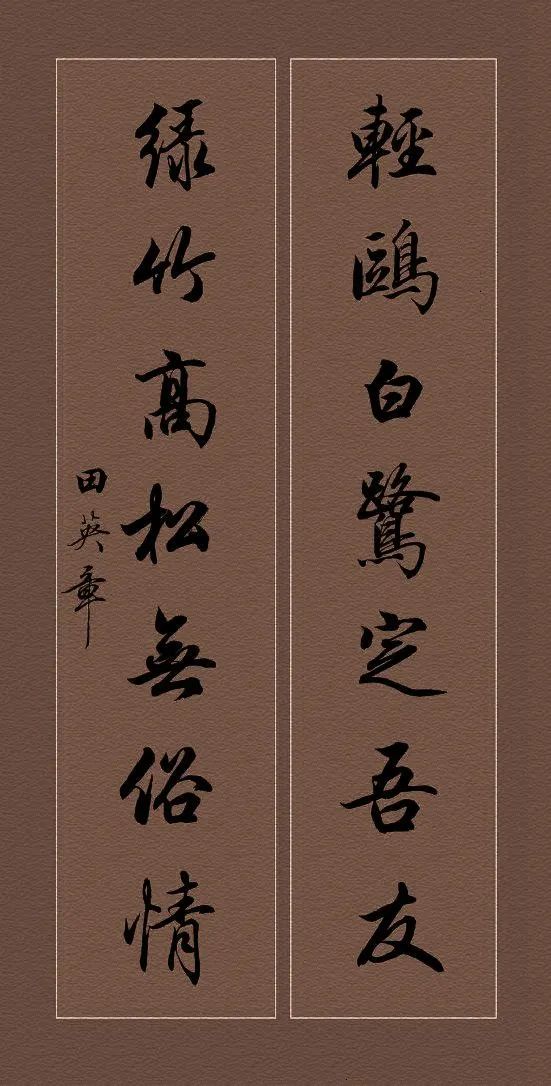 輕鷗白鷺定吾友
緑竹高松無俗情
田英章